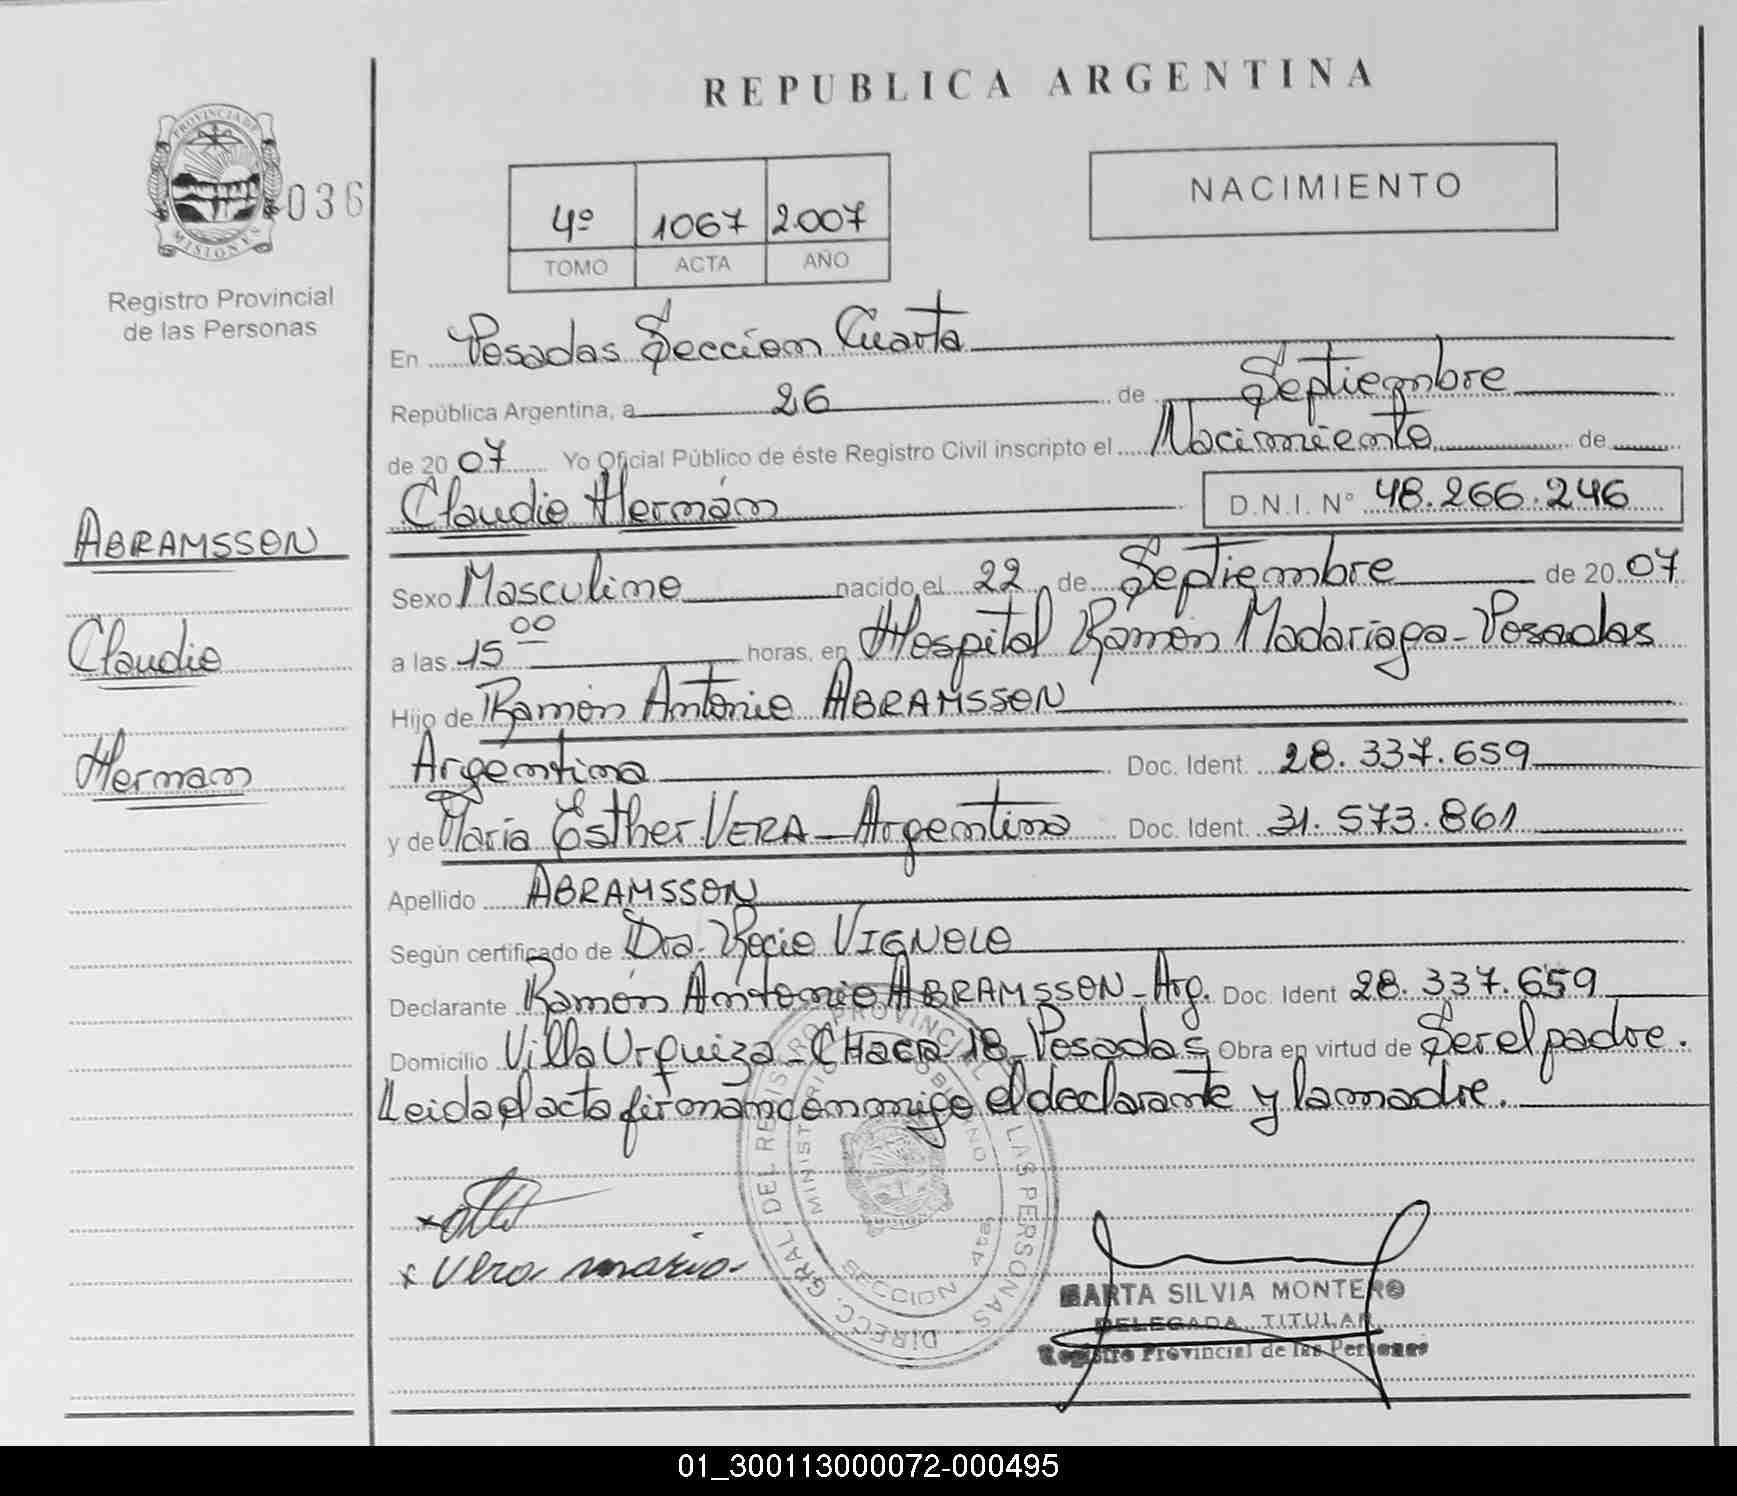 REPUBLICA ARGENTINA
PROVINCIA DE
MISIONES
036
Registro Provincial
de las Personas
4º 1067 2007
TOMO ACTA AÑO
NACIMIENTO
En Posadas Sección Cuarta
República Argentina, a 26 de Septiembre
de 2007 Yo Oficial Público de éste Registro Civil inscripto el Nacimiento de
Claudio Hernán D.N.I. Nº 48.266.246
ABRAMSSON
Claudio
Hernan
Sexo Masculino nacido el 22 de Septiembre de 2007
a las 15 00 horas, en Hospital Ramón Madariaga - Posadas
Hijo de Ramón Antonio ABRAMSSON
Argentino Doc. Ident. 28.337.659
y de María Esther VERA - Argentina Doc. Ident. 31.573.861
Apellido ABRAMSSON
Según certificado de Dra. Rocio VIGNOLO
Declarante Ramón Antonio ABRAMSSON - Arg. Doc. Ident 28.337.659
Domicilio Villa Urquiza - CHacra 18 - Posadas Obra en virtud de Ser el padre.
Leida el acta firman conmigo el declarante y la madre.
x Vera maria.
DIRECC. GRAL DEL REGISTRO PROVINCIAL DE LAS PERSONAS
SECCION 4ta
MARTA SILVIA MONTERO
DELEGADA TITULAR
Registro Provincial de las Personas
01_300113000072-000495